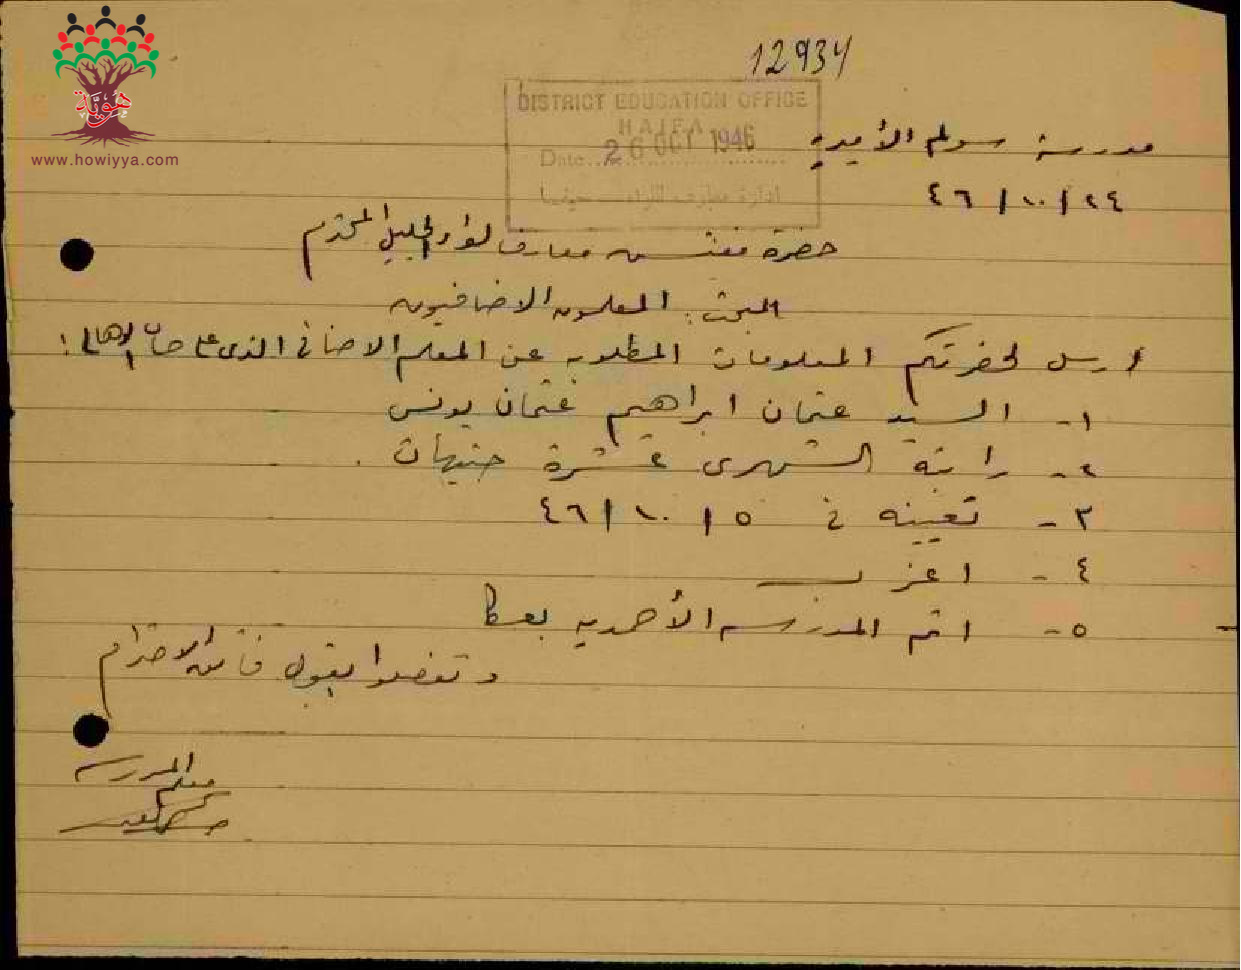 هوية
www.howiyya.com
12934
DISTRICT EDUCATION OFFICE
HAIFA
Date 26 OCT 1946
ادارة معارف اللواء حيفا
مدرسة سولم الأميرية
٢٤/١٠/٤٦
حضرة مفتش معارف لواء الجليل المحترم
المبحث: المعلمون الاضافيون
ارسل لحضرتكم المعلومات المطلوبه عن المعلم الاضافي الذي على حساب الاهالي:
١- السيد عثمان ابراهيم عثمان يونس
٢- راتبه الشهري عشرة جنيهات.
٣- تعيينه في ٥/١٠/٤٦
٤- اعزب
٥- اتم المدرسه الأحمديه بعكا
وتفضلوا بقبول فائق الاحترام
معلم المدرسه